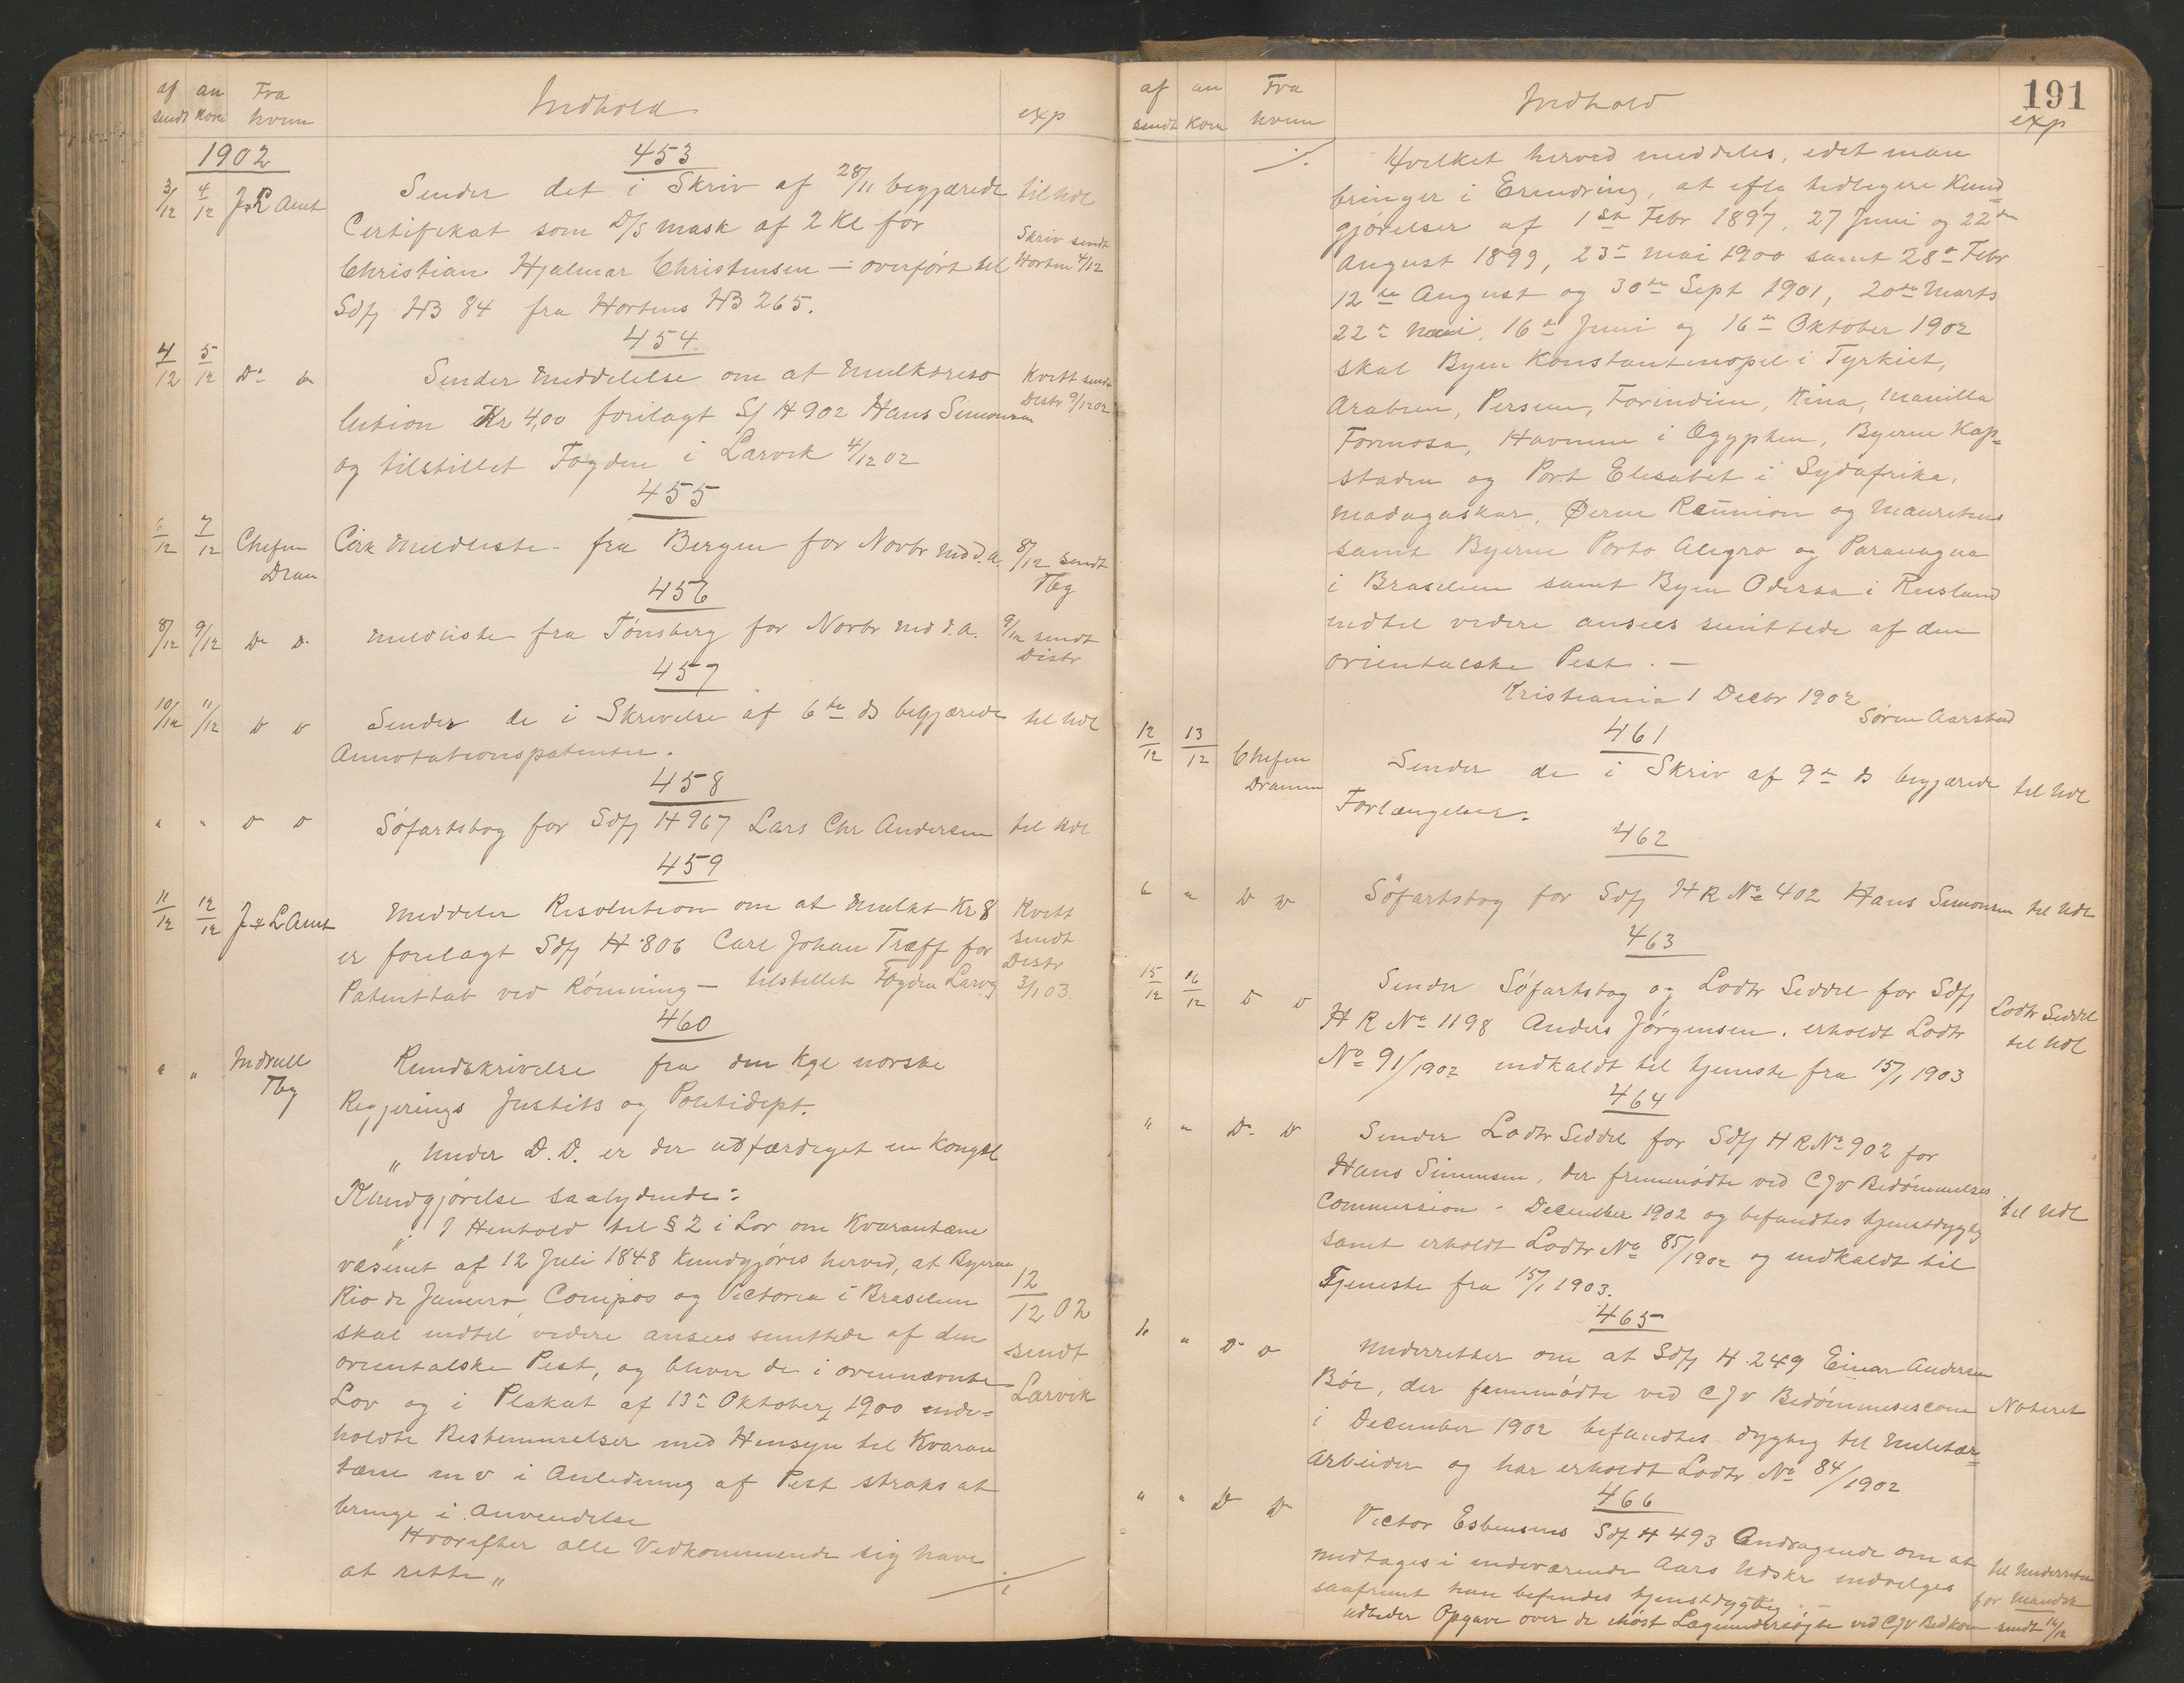 af an Fra Indhold exp
sendt kom hvem
1902
453
3/12 4/12 J & L Amt Sender det i Skriv af 28/11 begjærede til Udl
Certifikat som D/S Mask af 2 Kl for
Christian Hjalmar Christensen – overført til Skriv sendt Horten 4/12
Sdfj HB 84 fra Hortens HB 265.
454
4/12 5/12 Do Sender Meddelelse om at Mulktreso Kvitt sendt
lution Kr 4,00 forelagt Sf H 902 Hans Simonsen Distr 9/12 02
og tilstillet Fogden i Larvik 4/12 02
455
6/12 7/12 Chefen Dram Cirk Meldliste – fra Bergen for Novbr Md d.a. 8/12 sendt Tbg
456
8/12 9/12 D D Meldliste fra Tønsberg for Novbr Md d.a. 9/12 sendt Distr
457
10/12 11/12 D D Sender de i Skrivelse af 6te ds begjærede til Udl
Annotationspatenter.
458
" " D D Søfartsbog for Sdfj H 967 Lars Chr Andersen til Udl
459
11/12 12/12 J & L Amt Meddeler Resolution om at Mulkt Kr 8 Kvitt
er forelagt Sdfj H 806 Carl Johan Træff for sendt Distr
Patenttab ved Rømning – tilstillet Fogden Larvg 3/1 03.
460
" " Indrull Tbg Rundskrivelse fra den Kgl norske
Regjerings Justits og Politidept.
" Under D.D. er der udfærdiget en Kongel
Kundgjørelse saalydende:
" I Henhold til § 2 i Lov om Kvarantæne
væsenet af 12 Juli 1848 kundgjøres herved, at Byerne
Rio de Janeiro, Compos og Victoria i Brasilien 12/12 02
skal indtil videre ansees smittede af den sendt
orientalske Pest, og bliver de i ovennævnte Larvik
Lov og i Plakat af 13de Oktober 1900 inde-
holdte Bestemmelser med Hensyn til Kvaran
tæne m v i Anledning af Pest straks at
bringe i Anvendelse
Hvorefter alle Vedkommende sig have
at rette "
./.
191
af an Fra Indhold exp
sendt kom hvem
./. Hvilket herved meddeles, idet man
bringer i Erindring, at iflg tidligere Kund-
gjørelser af 1ste Febr 1897, 27 Juni og 22de
August 1899, 23de Mai 1900 samt 28de Febr
12te August og 30te Sept 1901, 20de Marts
22de Mai, 16de Juni og 16de Oktober 1902
skal Byen Konstantinopel i Tyrkiet,
Arabien, Persien, Forindien, Kina, Manilla
Formosa, Havnene i Ægypten, Byerne Kap-
staden og Port Elisabet i Sydafrika,
Madagaskar, Øerne Reunion og Mauritius
samt Byerne Porto Alegro og Paranagua
i Brasilien samt Byen Odessa i Rusland
indtil videre ansees smittede af den
orientalske Pest. –
Kristiania 1 Decbr 1902
Søren Aarstad
461
12/12 13/12 Chefen Dramm Sender de i Skriv af 9de ds begjærede til Udl
Forlængelser.
462
" " D D Søfartsbog for Sdfj HR No 402 Hans Simonsen til Udl
463
15/12 16/12 D D Sender Søfartsbog og Lodtr Seddel for Sdfj Lodtr Seddel
HR No 1198 Anders Jørgensen. erholdt Lodtr til Udl
No 91/1902 indkaldt til tjeneste fra 15/1 1903
464
" " D D Sender Lodtr Seddel for Sdfj HR No 902 for
Hans Simensen, der fremmødte ved CJv Bedømmelses
Commission – December 1902 og befandtes tjenstdygtig til Udl
samt erholdt Lodtr No 85/1902 og indkaldt til
Tjeneste fra 15/1 1903.
465
" " D D Underretter om at Sdfj H 249 Einar Andersen
Bøe, der femmødte ved CJv Bedømmelsescom Noteret
i December 1902 befandtes dygtig til Militær-
arbeider og har erholdt Lodtr No 84/1902
466
" " D D Victor Esbensens Sdf H 493 Andragende om at til Underretn
medtages i indeværende Aars Udskr indvilges for Mandsk
saafremt han befindes tjenstdygtig. –
udbeder Opgave over de Høst Lægeundersøgte ved CJV Bedkom sendt 16/12